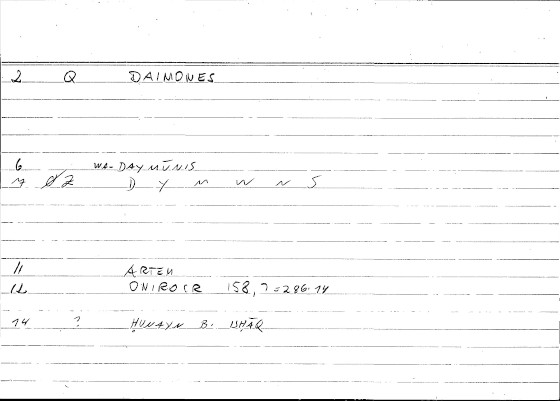 2 Q DAIMONES
6 WA-DAYMŪNIS
7 D Y M W N S
11 ARTEM
12 ONIROCR 158,7=286.14
14 ? ḤUNAYN B. ISḤĀQ